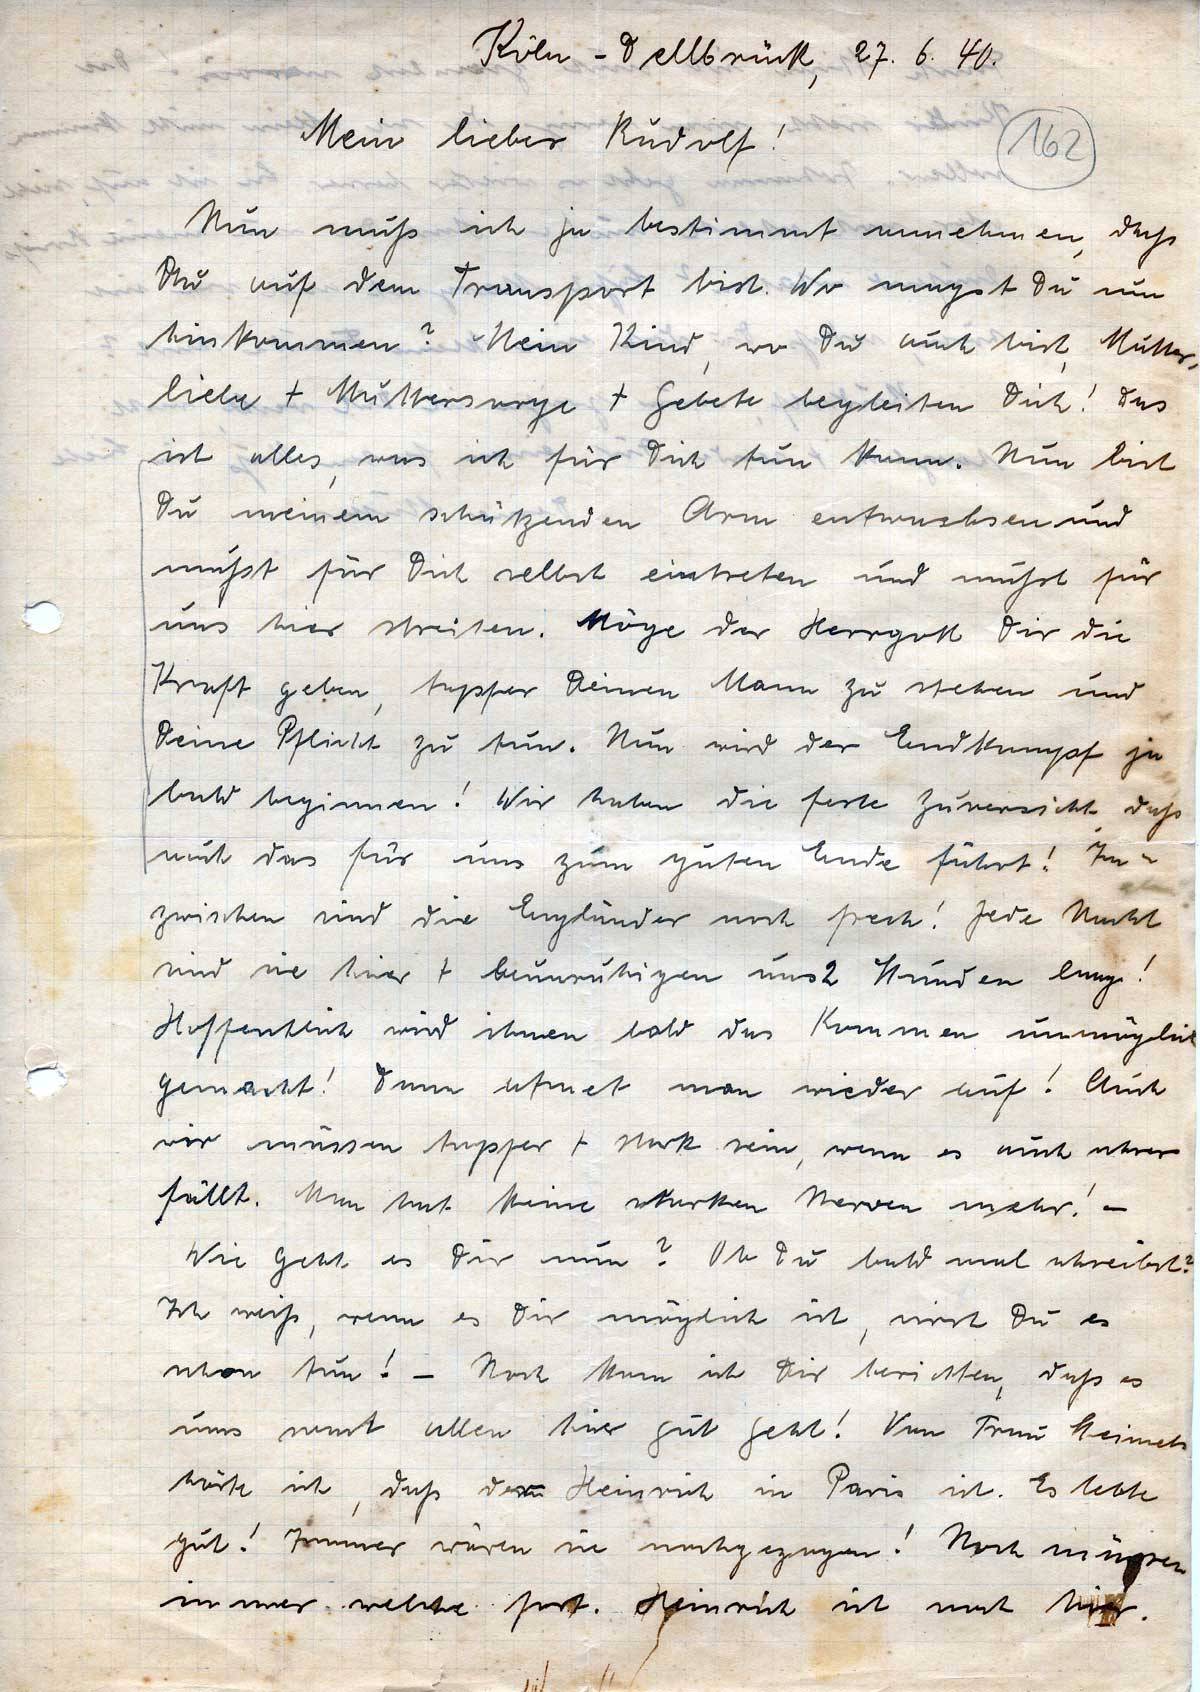 Köln - Dellbrück, 27. 6. 40.
162
Mein lieber Rudolf!
Nun muß ich ja bestimmt annehmen, daß
Du auf dem Transport bist. Wo magst Du nun
hinkommen? Mein Kind, wo Du auch bist, Mutter-
liebe + Muttersorge + Gebete begleiten Dich! Das
ist alles, was ich für Dich tun kann. Nun bist
Du meinem schützenden Arm entwachsen und
mußt für Dich selbst eintreten und mußt für
uns hier streiten. Möge der Herrgott Dir die
Kraft geben, tapfer Deinen Mann zu stehen und
Deine Pflicht zu tun. Nun wird der Endkampf ja
bald beginnen! Wir haben die feste Zuversicht, daß
auch das für uns zum guten Ende führt! In-
zwischen sind die Engländer noch frech! Jede Nacht
sind sie hier + beunruhigen uns 2 Stunden lang!
Hoffentlich wird ihnen bald das Kommen unmöglich
gemacht! Dann atmet man wieder auf! Auch
wir müssen tapfer + stark sein, wenn es auch schwer
fällt. Man hat keine starken Nerven mehr! -
Wie geht es Dir nun? Ob Du bald mal schreibst?
Ich weiß, wenn es Dir möglich ist, wirst Du es
schon tun! - Noch kann ich Dir berichten, daß es
uns sonst allen hier gut geht! Von Frau
hörte ich, daß Heinrich in Paris ist. Es lebte
gut! Immer wären sie nachgezogen! Noch müssen
immer welche fort. Heinrich ist noch hier.